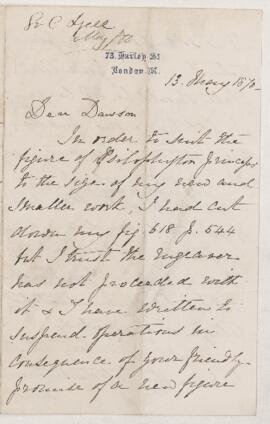 Sr C Lyell
May /70
73, Harley St.
London. W.
13. May 1870
Dear Dawson
In order to suit the
figure of Psilophyton princeps
to the size of my new and
smaller work I had cut
down my fig 618 p. 544
but I trust the engraver
has not proceeded with
it & I have written to
suspend operations in
consequence of your friendly
promise of a new figure